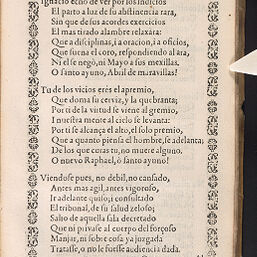 Ignacio echo de ver por los indicios
El parto a luz de su abstinencia rara,
Sin que de sus acordes exercicios
El mas tirado alambre relaxára:
Que a disciplinas, i a oracion, i a oficios,
Que suena el coro, respondiendo al ara,
Ni el se negò, ni Mayo a sus mexillas.
O santo ayuno, Abril de maravillas!
Tu de los vicios erés el apremio,
Que doma su cerviz, y la quebranta;
Por ti de la virtud se viene al gremio,
I nuestra mente al cielo se levanta:
Por ti se alcança el alto, el solo premio,
Que a quanto piensa el hombre, se adelanta;
De los que coras tu, no muere alguno.
O nuevo Raphael, ò santo ayuno!
Viendose pues, no debil, no cansado,
Antes mas agil, antes vigoroso,
Ir adelante quiso; i consultado
El tribunal, de su salud zeloso;
Salio de aquella sala decretado
Que ni privasse al cuerpo del forçoso
Manjar, ni sobre cosa ya juzgada
Tratasse, o no le fuesse audiencia dada.